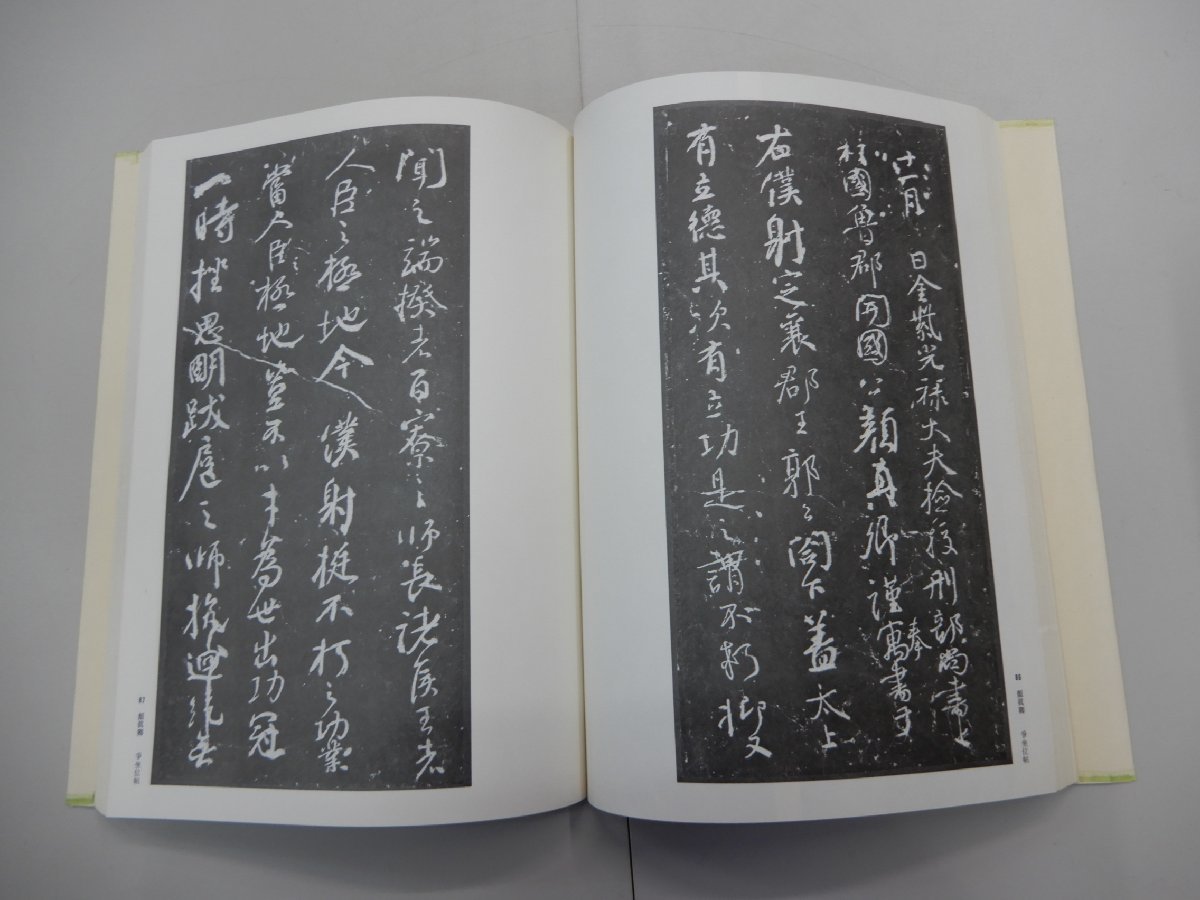 十一月 日金紫光祿大夫撿挍刑部尚書上
柱國魯郡開國公顏真卿謹寓書于
奉
右僕射定襄郡王郭公閤下蓋太上
有立德其次有立功是之謂不朽抑又
顏眞卿 爭坐位帖
聞之端揆者百寮之師長諸侯王者
人臣之極地今僕射挺不朽之功業
當人臣極地豈不以才為世出功冠
一時挫思明跋扈之師抗迴紇無
顏眞卿 爭坐位帖